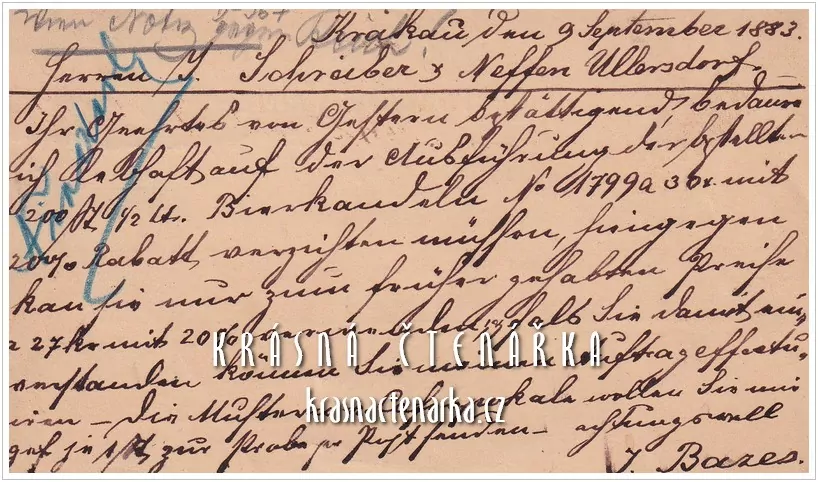 Wien Notiz gegen
Krakau den 9 September 1883.
Herren J. Schreiber & Neffen Ullersdorf
Ihr Geehrtes von Gestern bestättigend, bedaure
ich lebhaft auf der Ausführung der bestellten
200 St ½ Lt. Bierkandeln No 1799a 30x mit
20% Rabatt verzichten müssen, hingegen
kan sie nur zum früher gehabten Preise
a 27kr mit 20% verwenden, falls Sie damit ein-
verstanden können Sie meinen Auftrag effectu-
iren – Die Muster wollen Sie mir
gef je 1 St zur Probe per Post senden – achtungsvoll
J. Bazes.
KRÁSNÁ ČTENÁŘKA
krasnactenarka.cz